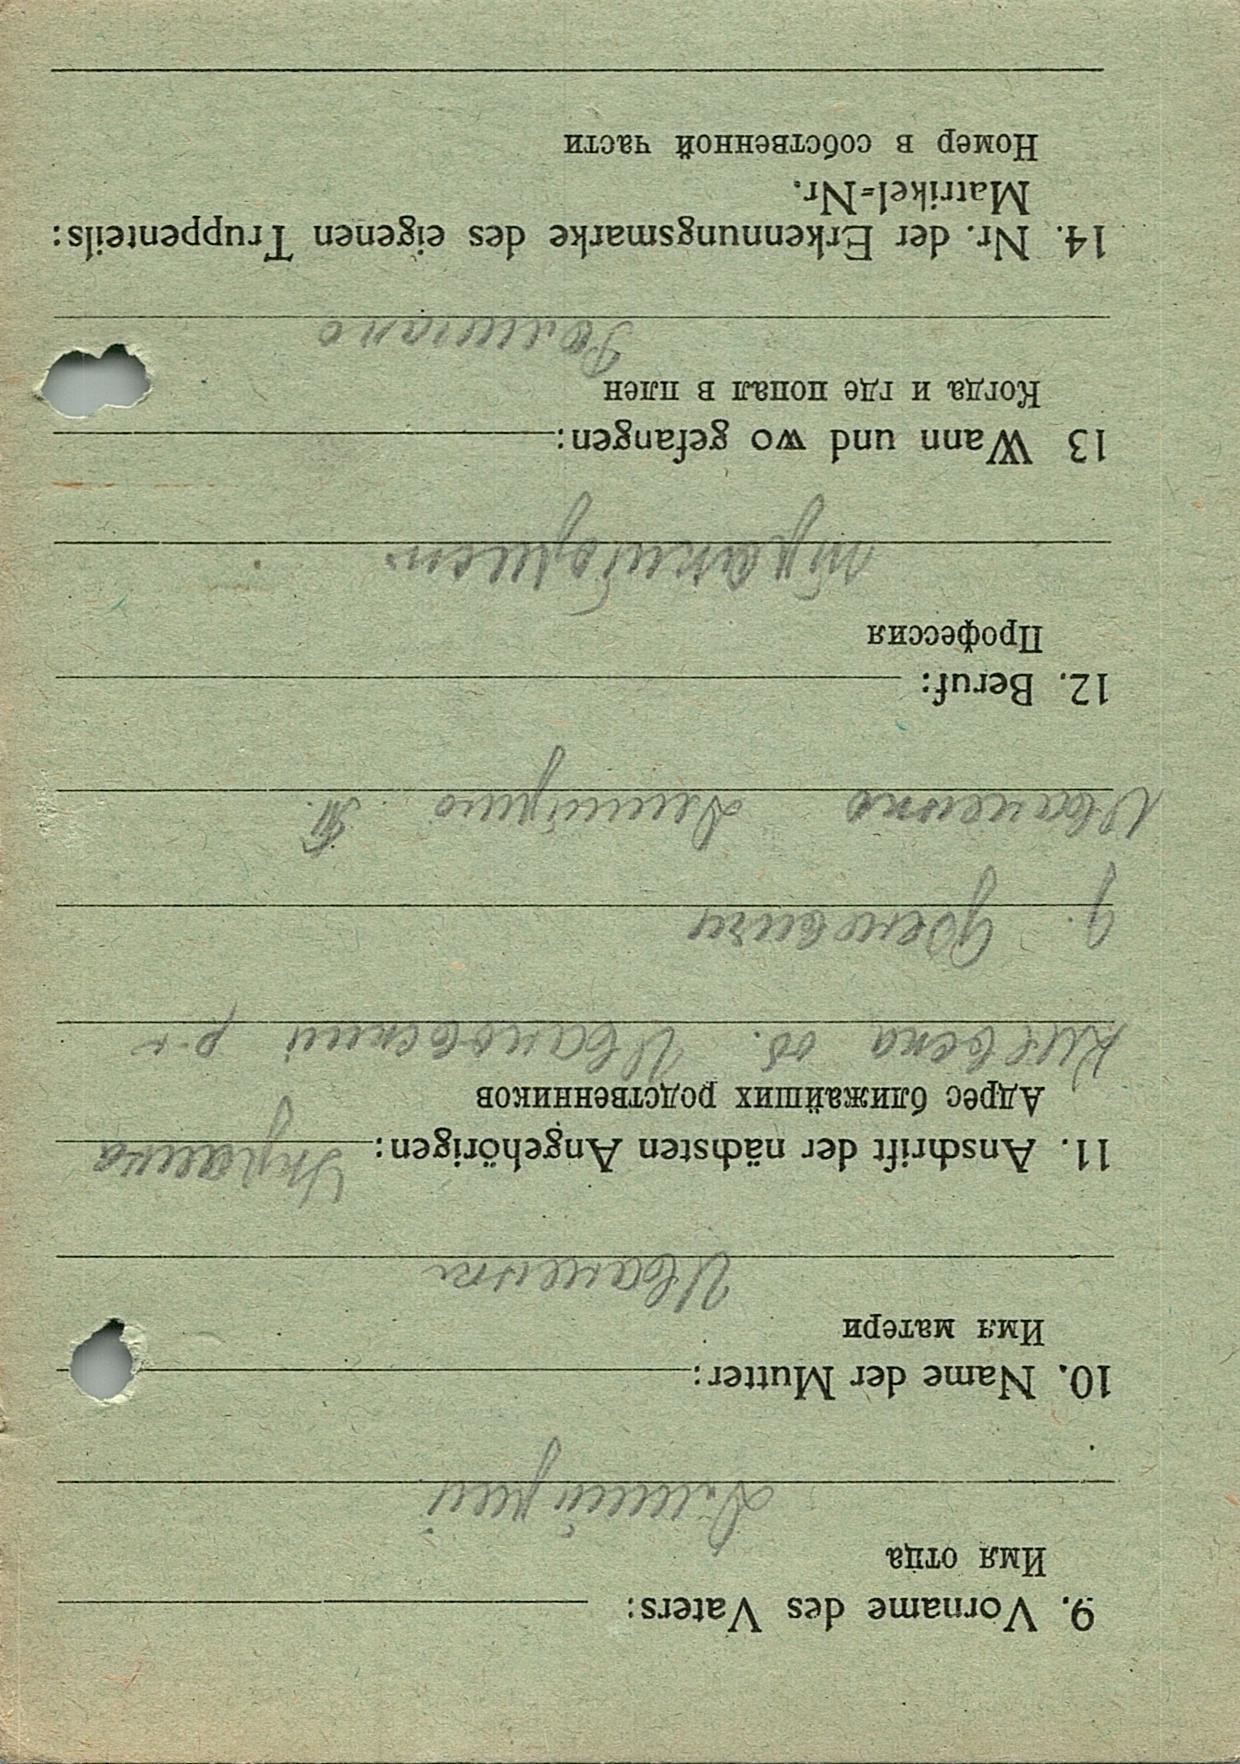 9. Vorname des Vaters:
Имя отца
Дмитрий
10. Name der Mutter:
Имя матери
Иваненко
11. Anschrift der nächsten Angehörigen: Украина
Адрес ближайших родственников
Киевска об. Ивановский р-н
д.
Иваненко Дмитрию
12. Beruf:
Профессия
тракторист
13 Wann und wo gefangen:
Когда и где попал в плен
14. Nr. der Erkennungsmarke des eigenen Truppenteils:
Matrikel-Nr.
Номер в собственной части